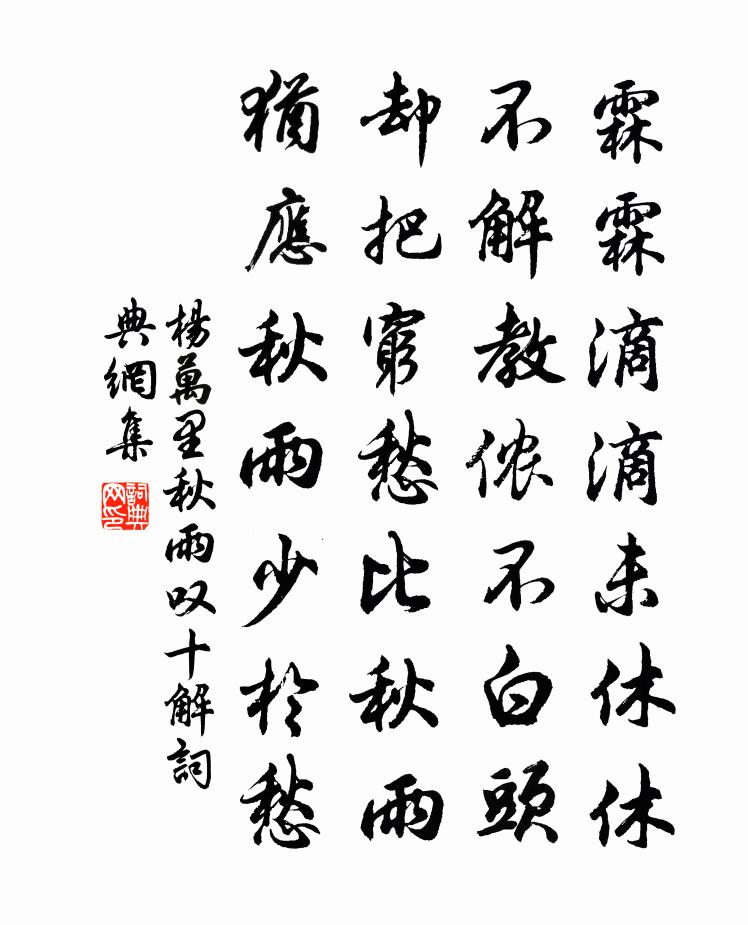 霖霖滴滴未休休
不解教侬不白頭
却把窮愁比秋雨
猶應秋雨少於愁
楊萬里秋雨叹十解詞
典網集
詞典
网印